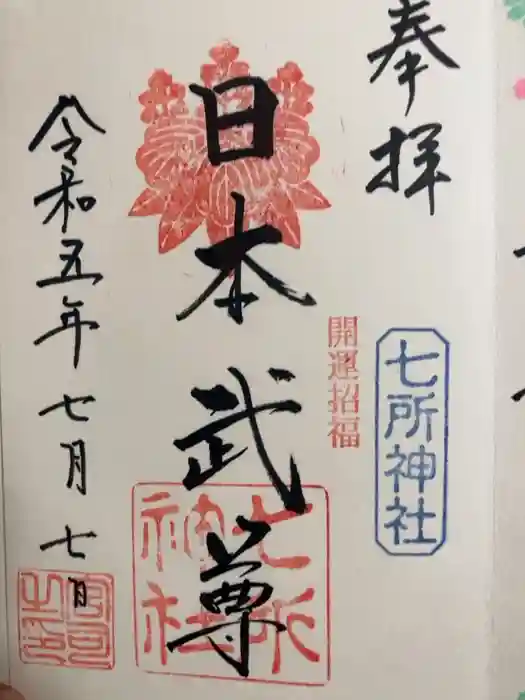 奉拝
七所神社
開運招福
日本武尊
七所
神社
令和五年七月七日
宮司
之印